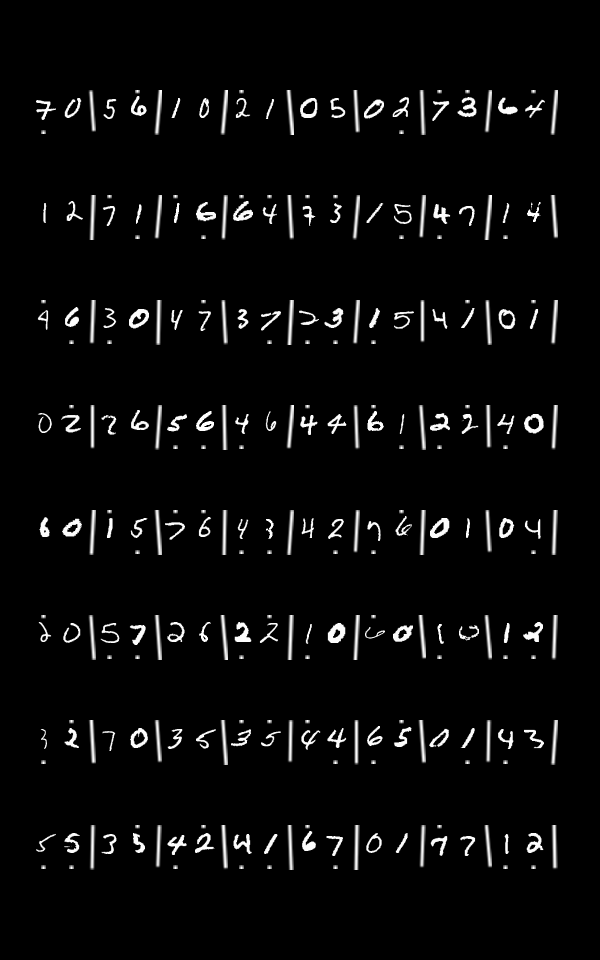 7 0 | 5 6 | 1 0 | 2 1 | 0 5 | 0 2 | 7 3 | 6 4 |
1 2 | 7 1 | 1 6 | 6 4 | 7 3 | 1 5 | 4 7 | 1 4 |
4 6 | 3 0 | 4 7 | 3 7 | 7 3 | 1 5 | 4 1 | 0 1 |
0 2 | 2 6 | 5 6 | 4 6 | 4 4 | 6 1 | 2 2 | 4 0 |
6 0 | 1 5 | 7 6 | 4 3 | 4 2 | 7 6 | 0 1 | 0 4 |
2 0 | 5 7 | 2 6 | 2 2 | 1 0 | 6 0 | 1 0 | 1 2 |
3 2 | 7 0 | 3 5 | 3 5 | 4 4 | 6 5 | 0 1 | 4 3 |
5 5 | 3 5 | 4 2 | 4 1 | 6 7 | 0 1 | 7 7 | 1 2 |